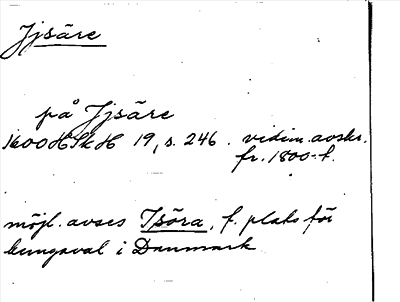 Jjsäre
på Jjsäre
1600 H Sk H 19, s. 246. vidim. avskr.
fr. 1800-t.
möjl. avses Isöra, f. plats för
kungaval i Danmark